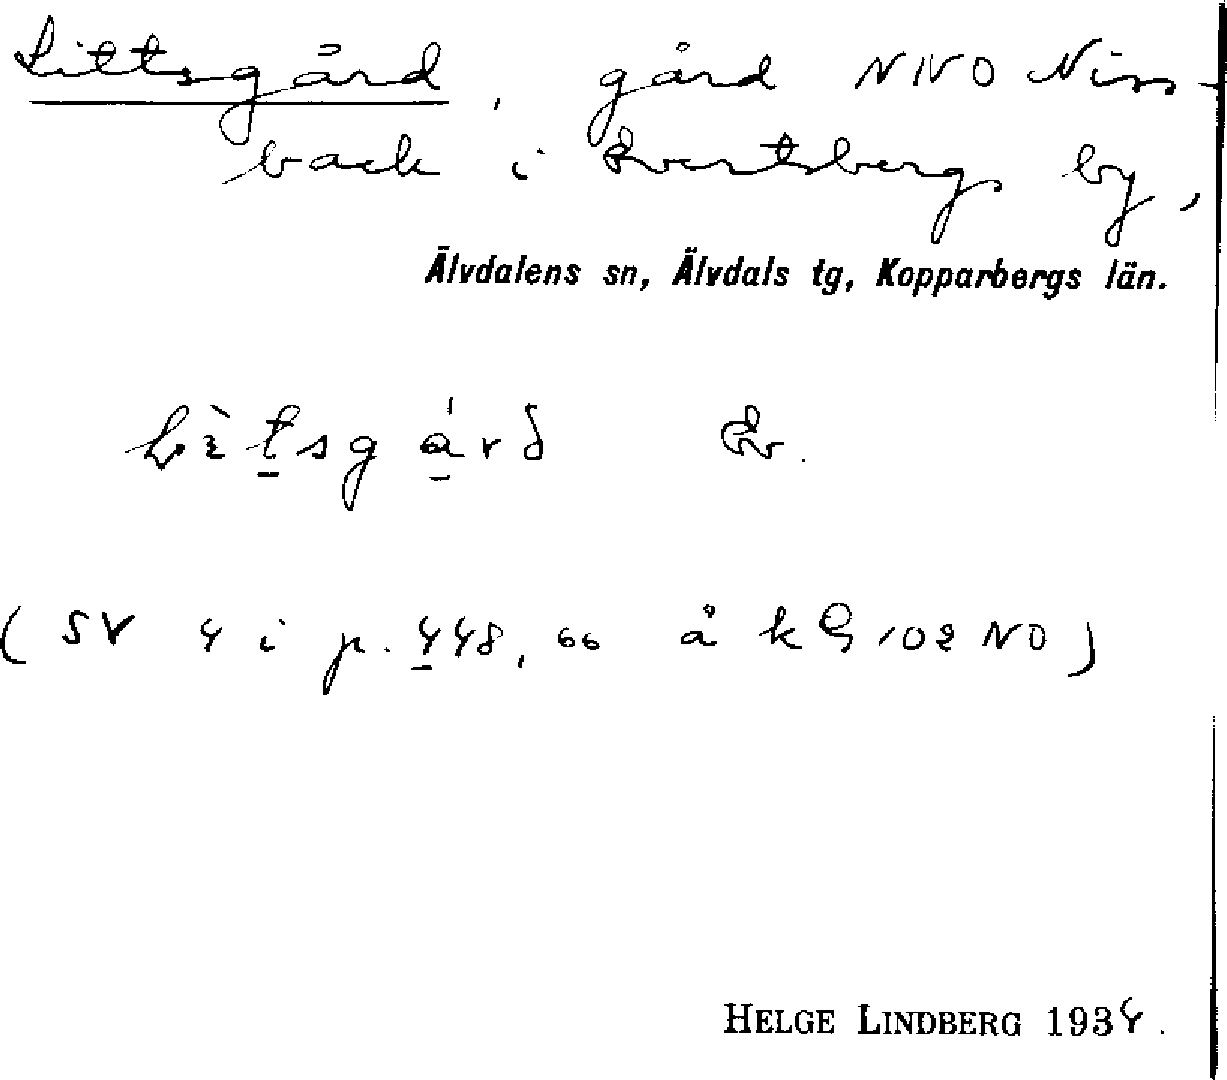 Littsgård, gård NNO Niss-
back i Evertsberg by,
Älvdalens sn, Älvdals tg, Kopparbergs län.
Ev.
(SV 4 i p. 448,66 å kG 102 NO)
HELGE LINDBERG 1934.